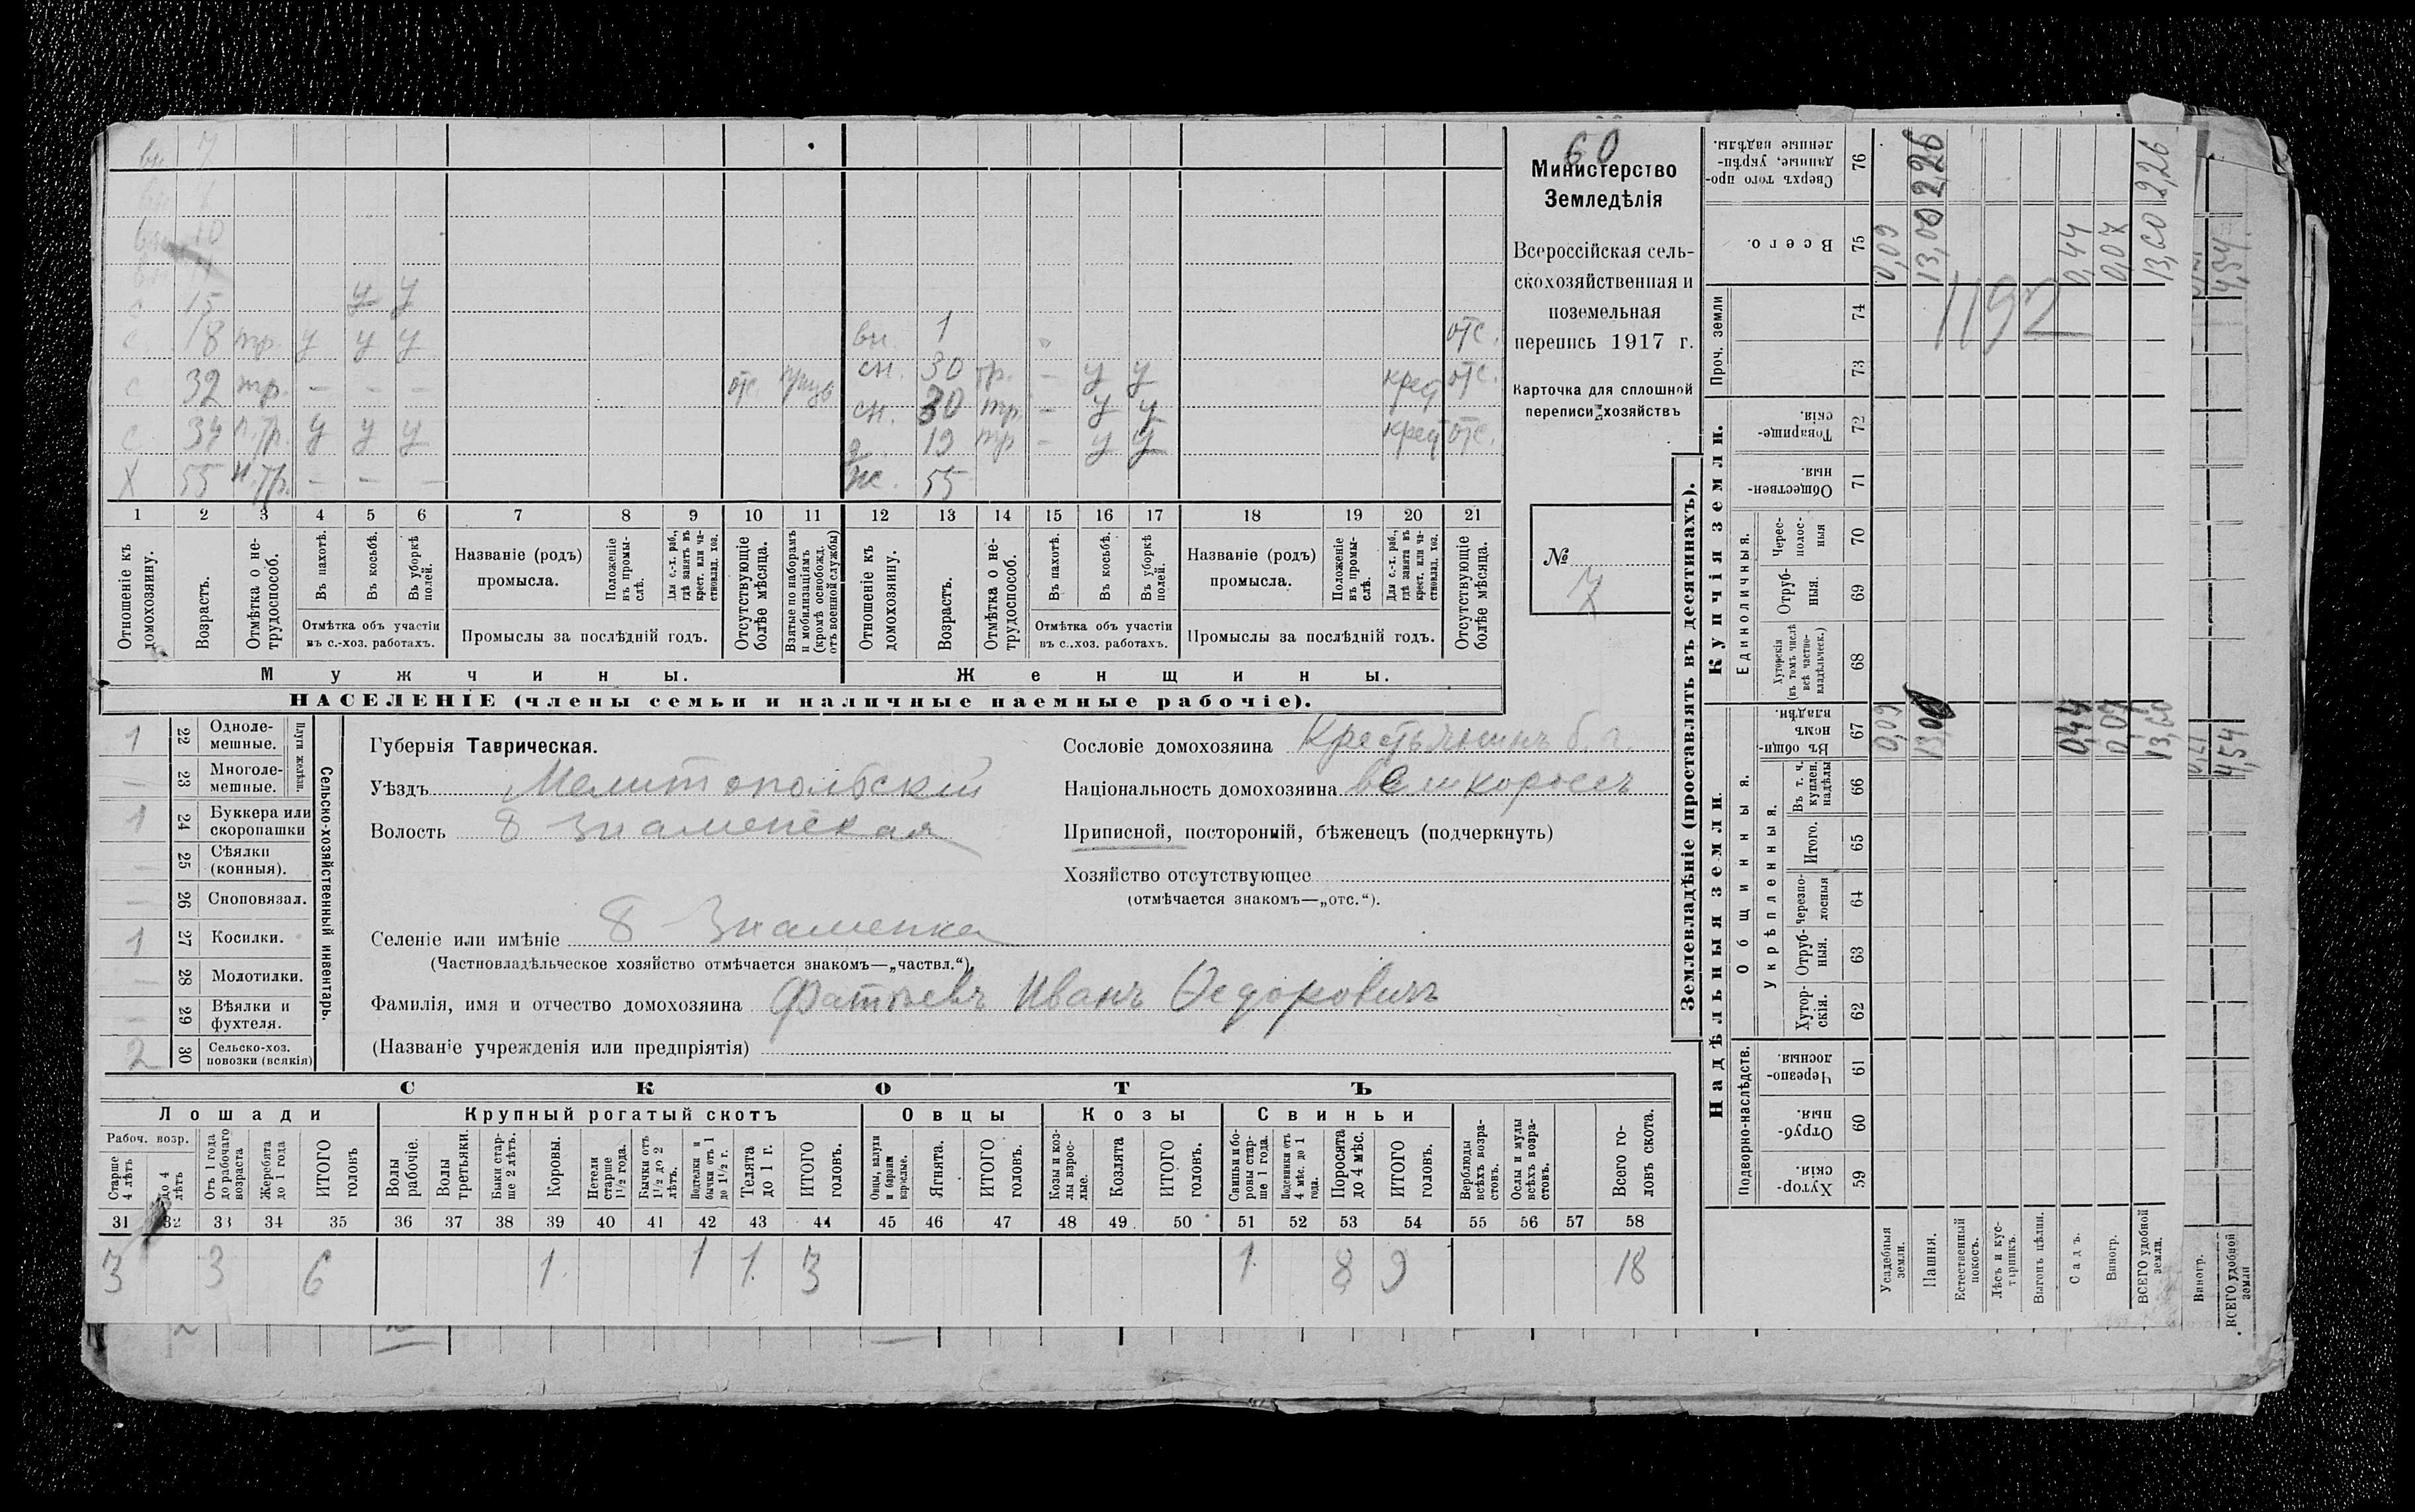 вн 7
вн 10
с 15 у у
с 18 тр. у у у
вн. 1 отс.
с 32 тр. — — — отс.
сн. 30 тр. — у у крест отс.
с 34 п.тр. у у у
сн. 30 тр — у у
д. 19 тр — у у крест отс.
Х 55 н.тр. — — —
ж. 55
1 2 3 4 5 6 7 8 9 10 11 12 13 14 15 16 17 18 19 20 21
Отношеніе къ домохозяину.
Возрастъ.
Отмѣтка о не-трудоспособ.
Въ пахотѣ.
Въ косьбѣ.
Въ уборкѣ полей.
Отмѣтка объ участіи
въ с.-хоз. работахъ.
Названіе (родъ)
промысла.
Положеніе въ промы-слѣ.
Для с.-х. раб., гдѣ занятъ въ крест. или ча-стновлад. хоз.
Промыслы за послѣдній годъ.
Отсутствующіе болѣе мѣсяца.
Взятые по наборамъ и мобилизаціямъ (кромѣ освобожд. отъ военной службы)
Отношеніе къ домохозяину.
Возрастъ.
Отмѣтка о не-трудоспособ.
Въ пахотѣ.
Въ косьбѣ.
Въ уборкѣ полей.
Отмѣтка объ участіи
въ с.-хоз. работахъ.
Названіе (родъ)
промысла.
Положеніе въ промы-слѣ.
Для с.-х. раб., гдѣ занята въ крест. или ча-стновлад. хоз.
Промыслы за послѣдній годъ.
Отсутствующіе болѣе мѣсяца.
Мужчины.
Женщины.
НАСЕЛЕНІЕ (члены семьи и наличные наемные рабочіе).
60
Министерство
Земледѣлія
Всероссійская сель-
скохозяйственная и
поземельная
перепись 1917 г.
Карточка для сплошной
переписи хозяйствъ
№
7
1 22 Одноле-мешные.
— 23 Многоле-мешные.
Плуги желѣзн.
1 24 Буккера или скоропашки
— 25 Сѣялки (конныя).
— 26 Сноповязал.
1 27 Косилки.
— 28 Молотилки.
— 29 Вѣялки и фухтеля.
2 30 Сельско-хоз. повозки (всякія)
Сельско-хозяйственный инвентарь.
Губернія Таврическая.
Уѣздъ Мелитопольскій
Волость Б Знаменская
Селеніе или имѣніе Б Знаменка
(Частновладѣльческое хозяйство отмѣчается знакомъ—„частвл.“)
Фамилія, имя и отчество домохозяина Фатѣевъ Иванъ Ѳедоровичъ
(Названіе учрежденія или предпріятія)
Сословіе домохозяина Крестьянинъ б. г.
Національность домохозяина великороссъ
Приписной, посторонній, бѣженецъ (подчеркнуть)
Хозяйство отсутствующее
(отмѣчается знакомъ—„отс.“).
СКОТЪ
Лошади
Крупный рогатый скотъ
Овцы
Козы
Свиньи
Рабоч. возр.
Старше 4 лѣтъ
до 4 лѣтъ
Отъ 1 года до рабочаго возраста
Жеребята до 1 года
ИТОГО головъ
Волы рабочіе.
Волы третьяки.
Быки стар-ше 2 лѣтъ.
Коровы.
Нетели старше 1½ года.
Бычки отъ 1½ до 2 лѣтъ.
Подтелки и бычки отъ 1 до 1½ г.
Телята до 1 г.
ИТОГО головъ.
Овцы, валухи и бараны взрослые.
Ягнята.
ИТОГО головъ.
Козы и коз-лы взрос-лые.
Козлята
ИТОГО головъ.
Свиньи и бо-ровы стар-ше 1 года.
Подсвинки отъ 4 мѣс. до 1 года.
Поросята до 4 мѣс.
ИТОГО головъ.
Верблюды всѣхъ возра-стовъ.
Ослы и мулы всѣхъ возра-стовъ.
Всего го-ловъ скота.
31 32 33 34 35 36 37 38 39 40 41 42 43 44 45 46 47 48 49 50 51 52 53 54 55 56 57 58
3 3 6 1 1 1 3 1 8 9 18
Землевладѣніе (проставлять въ десятинахъ).
Надѣльныя земли.
Купчія земли.
Проч. земли
Подворно-наслѣдств.
Общинныя.
Укрѣпленныя.
Единоличныя.
Хутор-скія. 59
Отруб-ныя. 60
Черезпо-лосныя. 61
Хутор-скія. 62
Отруб-ныя. 63
Черезпо-лосныя 64
Итого. 65
Въ т. ч. куплен. надѣлы 66
Въ общин-номъ владѣн. 67
Хуторскія (въ томъ числѣ всѣ частно-владѣльческ.) 68
Отруб-ныя. 69
Черес-полос-ныя 70
Обществен-ныя. 71
Товарище-скія. 72
73
74
Всего. 75
Сверхъ того про-данные, укрѣп-ленные надѣлы. 76
Усадебныя земли. 0,09 0,09
Пашня. 13,00 13,00 2,26
Естественный покосъ.
Лѣсъ и кус-тарникъ.
Выгонъ цѣлин.
Садъ. 0,44 0,44
Виногр. 0,07 0,07
ВСЕГО удобной земли. 13,60 13,60 2,26
1192
Виногр.
ВСЕГО удобной земли 4,54 4,54